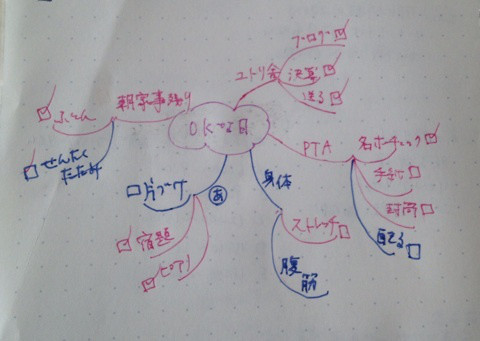 ブログ
ユトリ舎
決算
送る
朝家事残り
ふとん
せんたく
たたみ
PTA
名ボチェック
手紙
封筒
片づけ
あ
身体
ストレッチ
宿題
ピアノ
腹筋